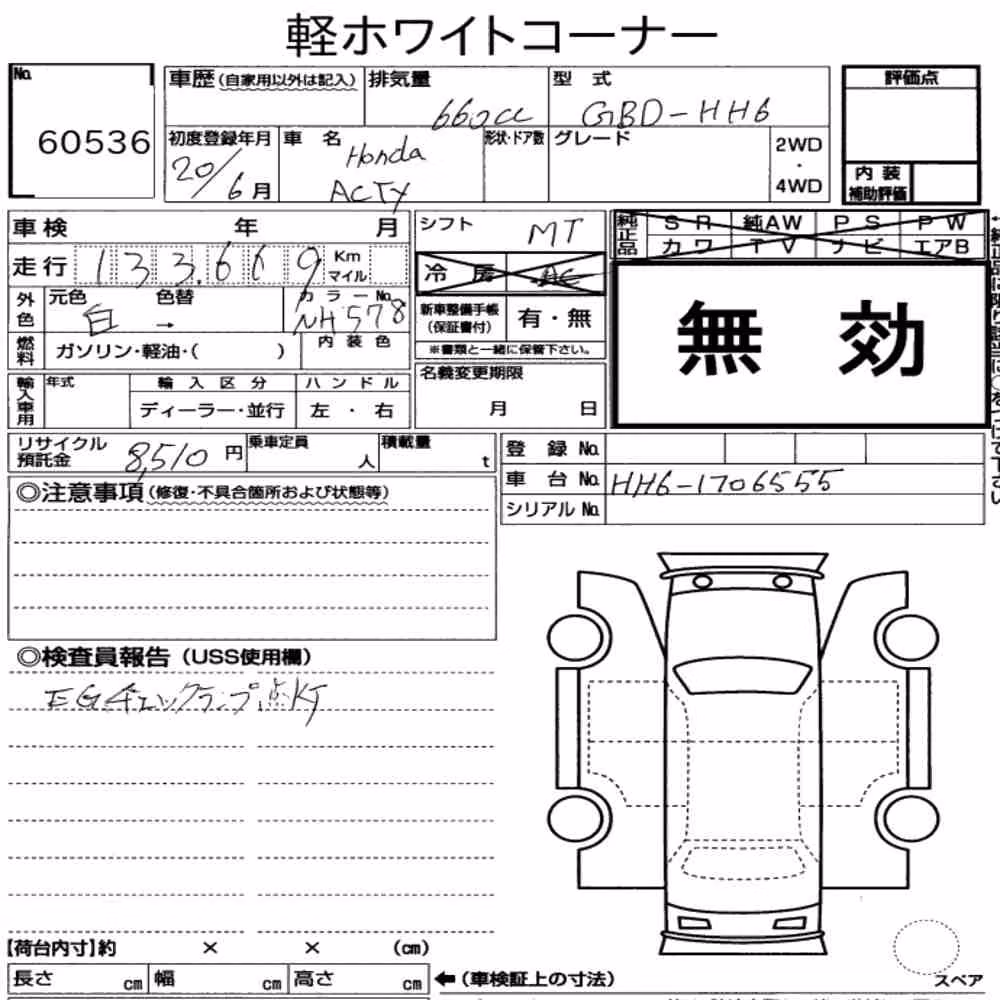 軽ホワイトコーナー
No.
60536
車歴(自家用以外は記入)
排気量
660cc
型 式
GBD-HH6
評価点
初度登録年月
20/6月
車 名
Honda
ACTY
形状・ドア数
グレード
2WD
・
4WD
内 装
補助評価
車検 年 月
シフト
MT
純正品
SR 純AW PS PW
カワ TV ナビ エアB
走行
133,669
Km
マイル
冷 房
AC
外色
元色
白
色替
→
カラーNo.
NH578
新車整備手帳
(保証書付)
有・無
※書類と一緒に保管下さい。
無 効
燃料
ガソリン・軽油・( )
内装色
名義変更期限
月 日
輸入車用
年式
輸入区分
ディーラー・並行
ハンドル
左 ・ 右
リサイクル
預託金
8,510円
乗車定員
人
積載量
t
登 録 No.
車 台 No.
HH6-1706555
シリアル No.
◎注意事項(修復・不具合箇所および状態等)
◎検査員報告(USS使用欄)
EGチェックランプ点灯
【荷台内寸】約 × × (cm)
長さ cm 幅 cm 高さ cm
←(車検証上の寸法)
スペア